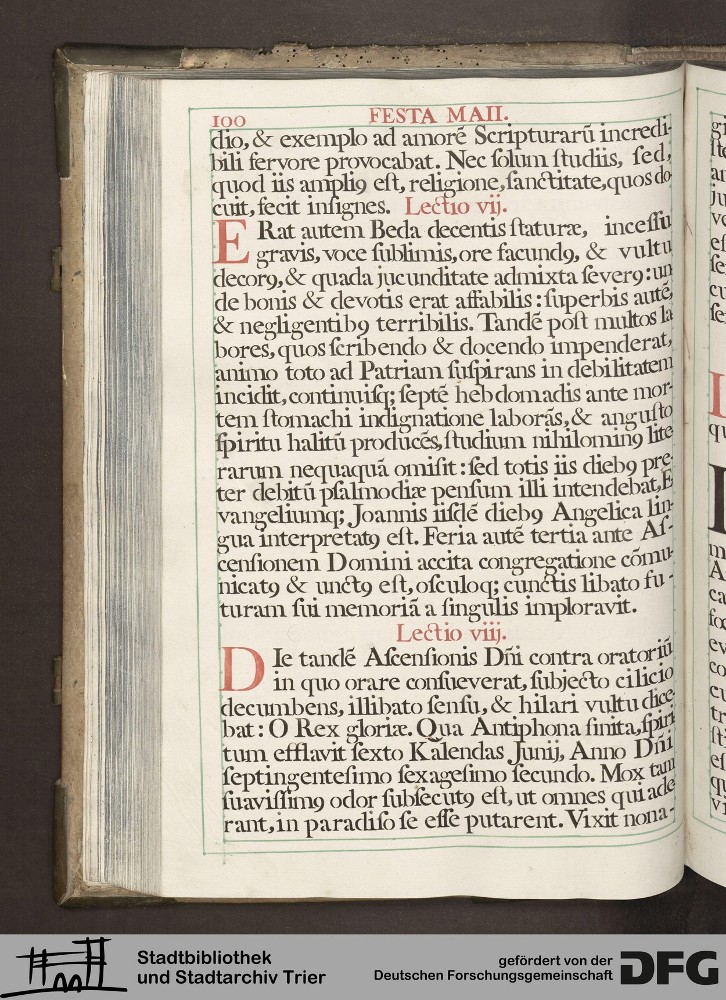 100 FESTA MAII.
dio, & exemplo ad amorẽ Scripturarũ incredi-
bili fervore provocabat. Nec ſolum ſtudiis, ſed,
quod iis ampli9 eſt, religione, ſanctitate, quos do
cuit, fecit inſignes. Lectio vij.
ERat autem Beda decentis ſtaturæ, inceſſu
gravis, voce ſublimis, ore facund9, & vultu
decor9, & quada jucunditate admixta ſever9: un
de bonis & devotis erat affabilis: ſuperbis autẽ,
& negligentib9 terribilis. Tandẽ poſt multos la
bores, quos ſcribendo & docendo impenderat,
animo toto ad Patriam ſuſpirans in debilitatem
incidit, continuiſq; ſeptẽ hebdomadis ante mor-
tem ſtomachi indignatione laborãs, & anguſto
ſpiritu halitũ producẽs, ſtudium nihilomin9 lite
rarum nequaquã omiſit: ſed totis iis dieb9 pre-
ter debitũ pſalmodiæ penſum illi intendebat, E
vangeliumq; Joannis iiſdẽ dieb9 Angelica lin-
gua interpretat9 eſt. Feria autẽ tertia ante Aſ-
cenſionem Domini accita congregatione cõmu-
nicat9 & unct9 eſt, oſculoq; cunctis libato fu-
turam ſui memoriã a ſingulis imploravit.
Lectio viij.
DIe tandẽ Aſcenſionis Dñi contra oratoriũ
in quo orare conſueverat, ſubjecto cilicio
decumbens, illibato ſenſu, & hilari vultu dice-
bat: O Rex gloriæ. Qua Antiphona finita, ſpiri
tum efflavit ſexto Kalendas Junij, Anno Dñi
ſeptingenteſimo ſexageſimo ſecundo. Mox tam
ſuaviſſim9 odor ſubſecut9 eſt, ut omnes qui ade
rant, in paradiſo ſe eſſe putarent. Vixit nona-
Stadtbibliothek
und Stadtarchiv Trier
gefördert von der
Deutschen Forschungsgemeinschaft
DFG